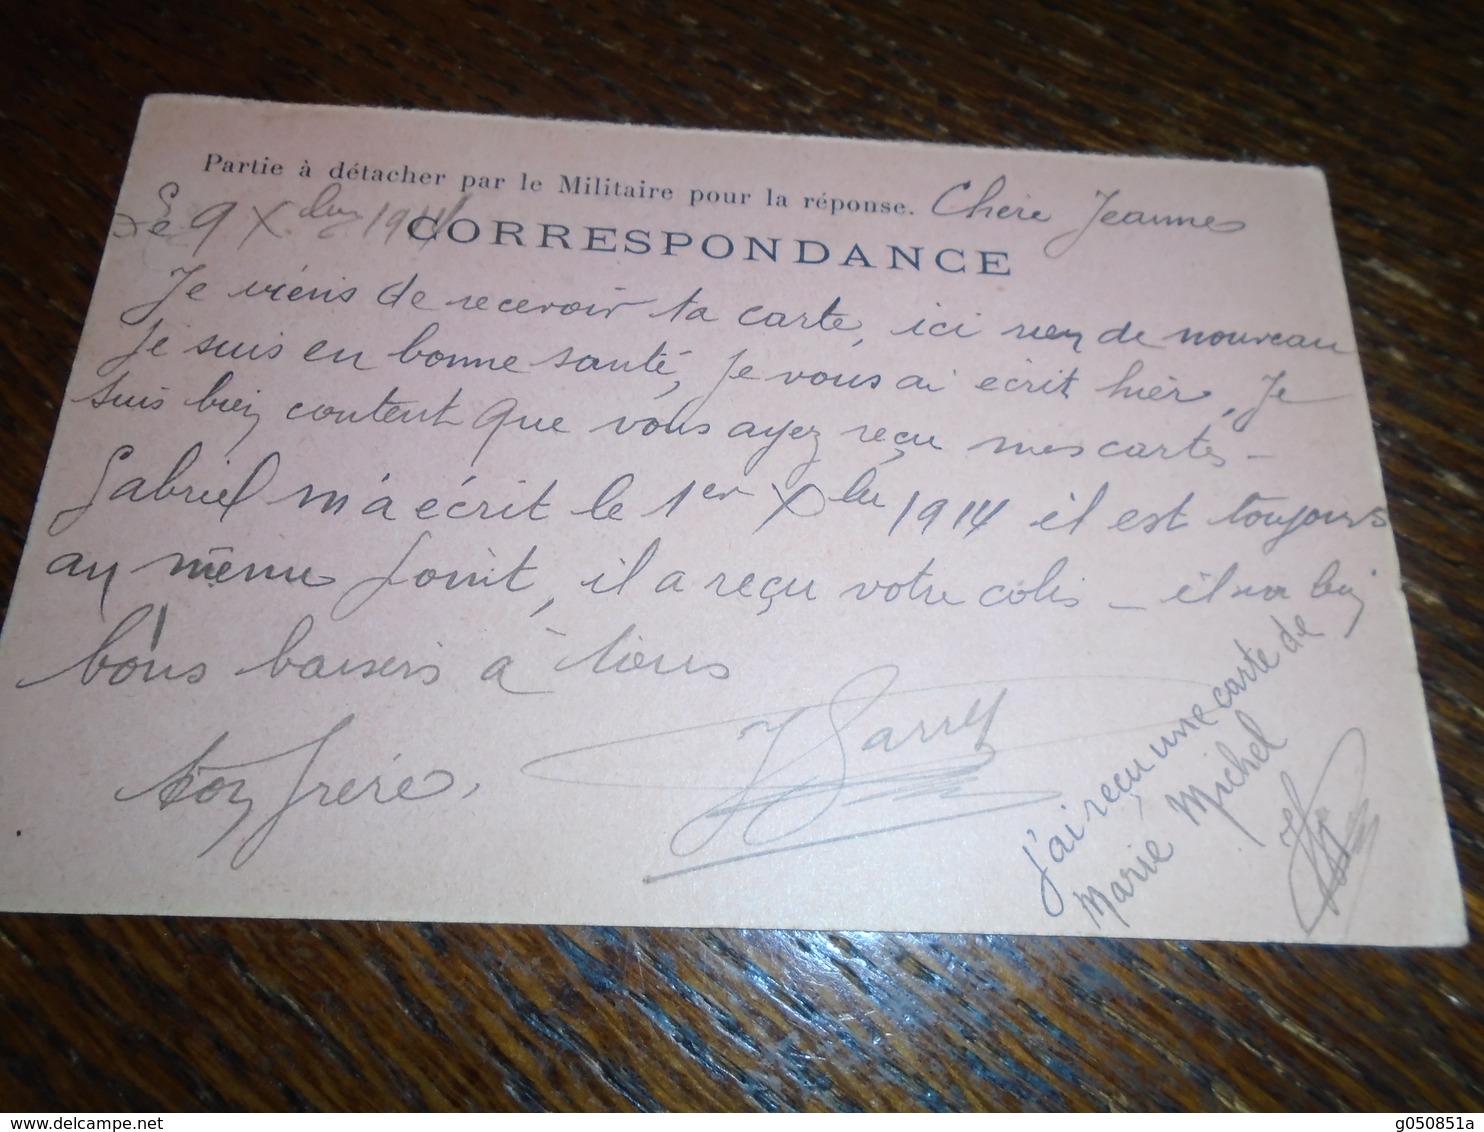 Partie à détacher par le Militaire pour la réponse.
Chère Jeanne
Le 9 Xbre 1914
CORRESPONDANCE
Je viens de recevoir ta carte, ici rien de nouveau
Je suis en bonne santé, Je vous ai écrit hièr, Je
suis bien content que vous ayez reçu mes cartes -
Gabriel m'a écrit le 1er Xbre 1914 il est toujours
au même point, il a reçu votre colis - il va bien
bons baisers à tous
ton frère,
J'ai reçu une carte de
Marie Michel
delcampe.net
g050851a